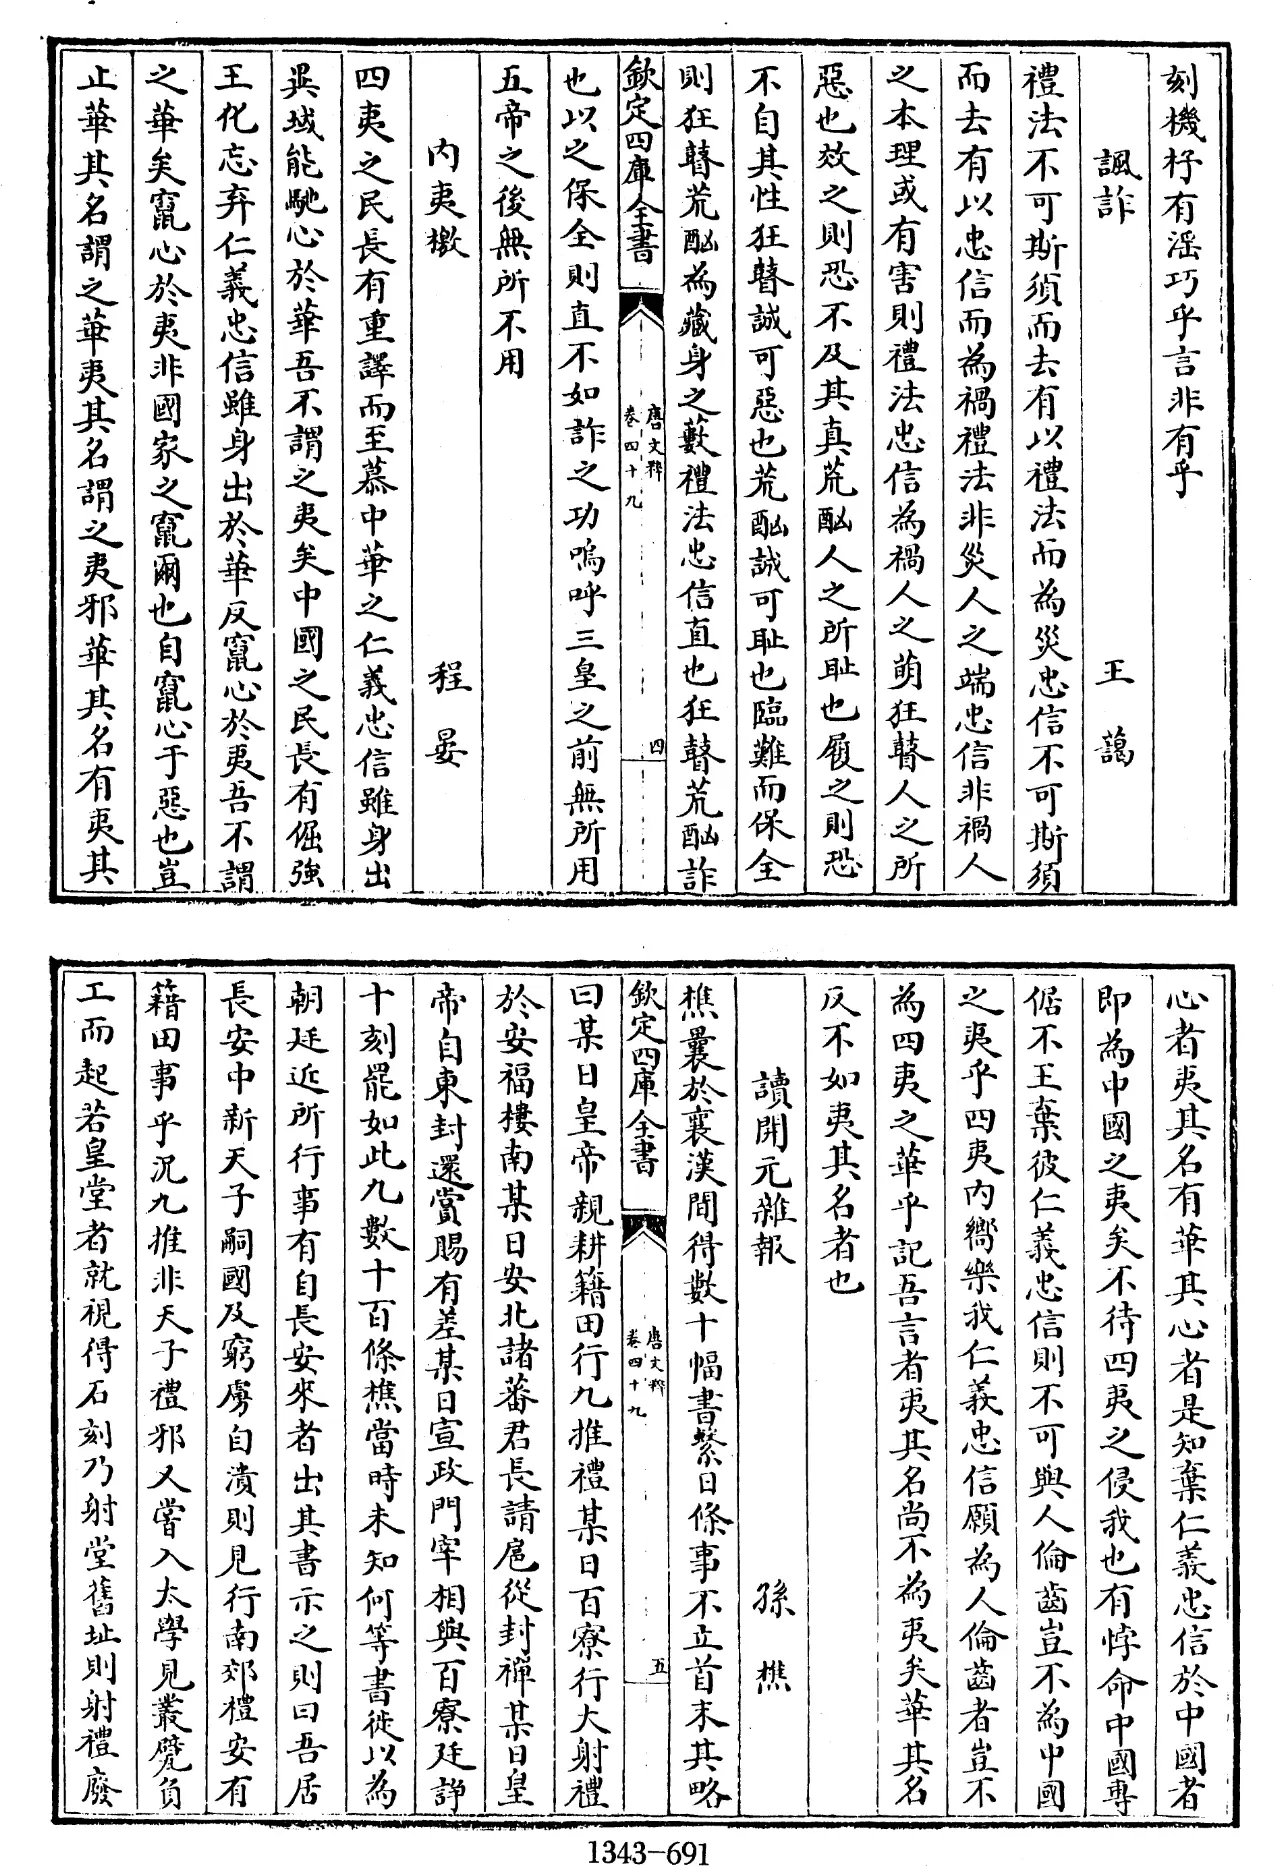 刻機杼有滛巧乎言非有乎
諷詐 王藹
禮法不可斯須而去有以禮法而為災忠信不可斯須
而去有以忠信而為禍禮法非災人之端忠信非禍人
之本理或有害則禮法忠信為禍人之萌狂瞽人之所
惡也效之則恐不及其真荒酗人之所耻也履之則恐
不自其性狂瞽誠可惡也荒酗誠可耻也臨難而保全
則狂瞽荒酗為藏身之藪禮法忠信直也狂瞽荒酗詐
欽定四庫全書 唐文粹 卷四十九 四
也以之保全則直不如詐之功嗚呼三皇之前無所用
五帝之後無所不用
内夷檄 程晏
四夷之民長有重譯而至慕中華之仁義忠信雖身出
異域能馳心於華吾不謂之夷矣中國之民長有倔強
王化忘弃仁義忠信雖身出於華反竄心於夷吾不謂
之華矣竄心於夷非國家之竄爾也自竄心于惡也豈
止華其名謂之華夷其名謂之夷邪華其名有夷其
心者夷其名有華其心者是知棄仁義忠信於中國者
即為中國之夷矣不待四夷之侵我也有悖命中國專
倨不王棄彼仁義忠信則不可與人倫齒豈不為中國
之夷乎四夷内嚮樂我仁義忠信願為人倫齒者豈不
為四夷之華乎記吾言者夷其名尚不為夷矣華其名
反不如夷其名者也
讀開元雜報 孫樵
樵曩於襄漢間得數十幅書繫日條事不立首末其略
欽定四庫全書 唐文粹 卷四十九 五
曰某日皇帝親耕籍田行九推禮某日百寮行大射禮
於安福樓南某日安北諸蕃君長請扈從封禪某日皇
帝自東封還賞賜有差某日宣政門宰相與百寮廷諍
十刻罷如此凡數十百條樵當時未知何等書徒以為
朝廷近所行事有自長安來者出其書示之則曰吾居
長安中新天子嗣國及窮虜自潰則見行南郊禮安有
籍田事乎況九推非天子禮邪又嘗入太學見叢甓負
工而起若皇堂者就視得石刻乃射堂舊址則射禮廢
1343-691